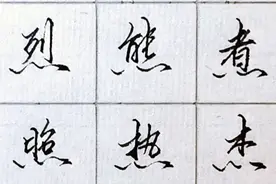 烈熊煮
照热杰